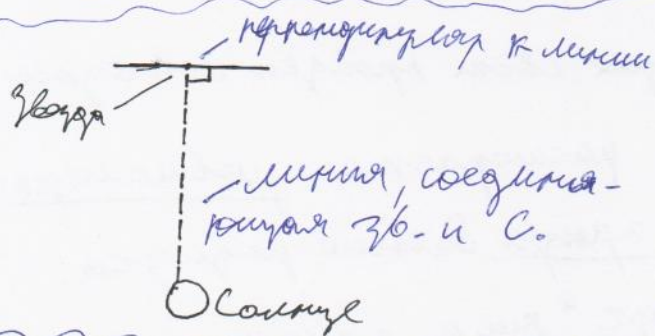 перпендикуляр к линии
звезда
линия, соединя-
ющая зв. и С.
Солнце